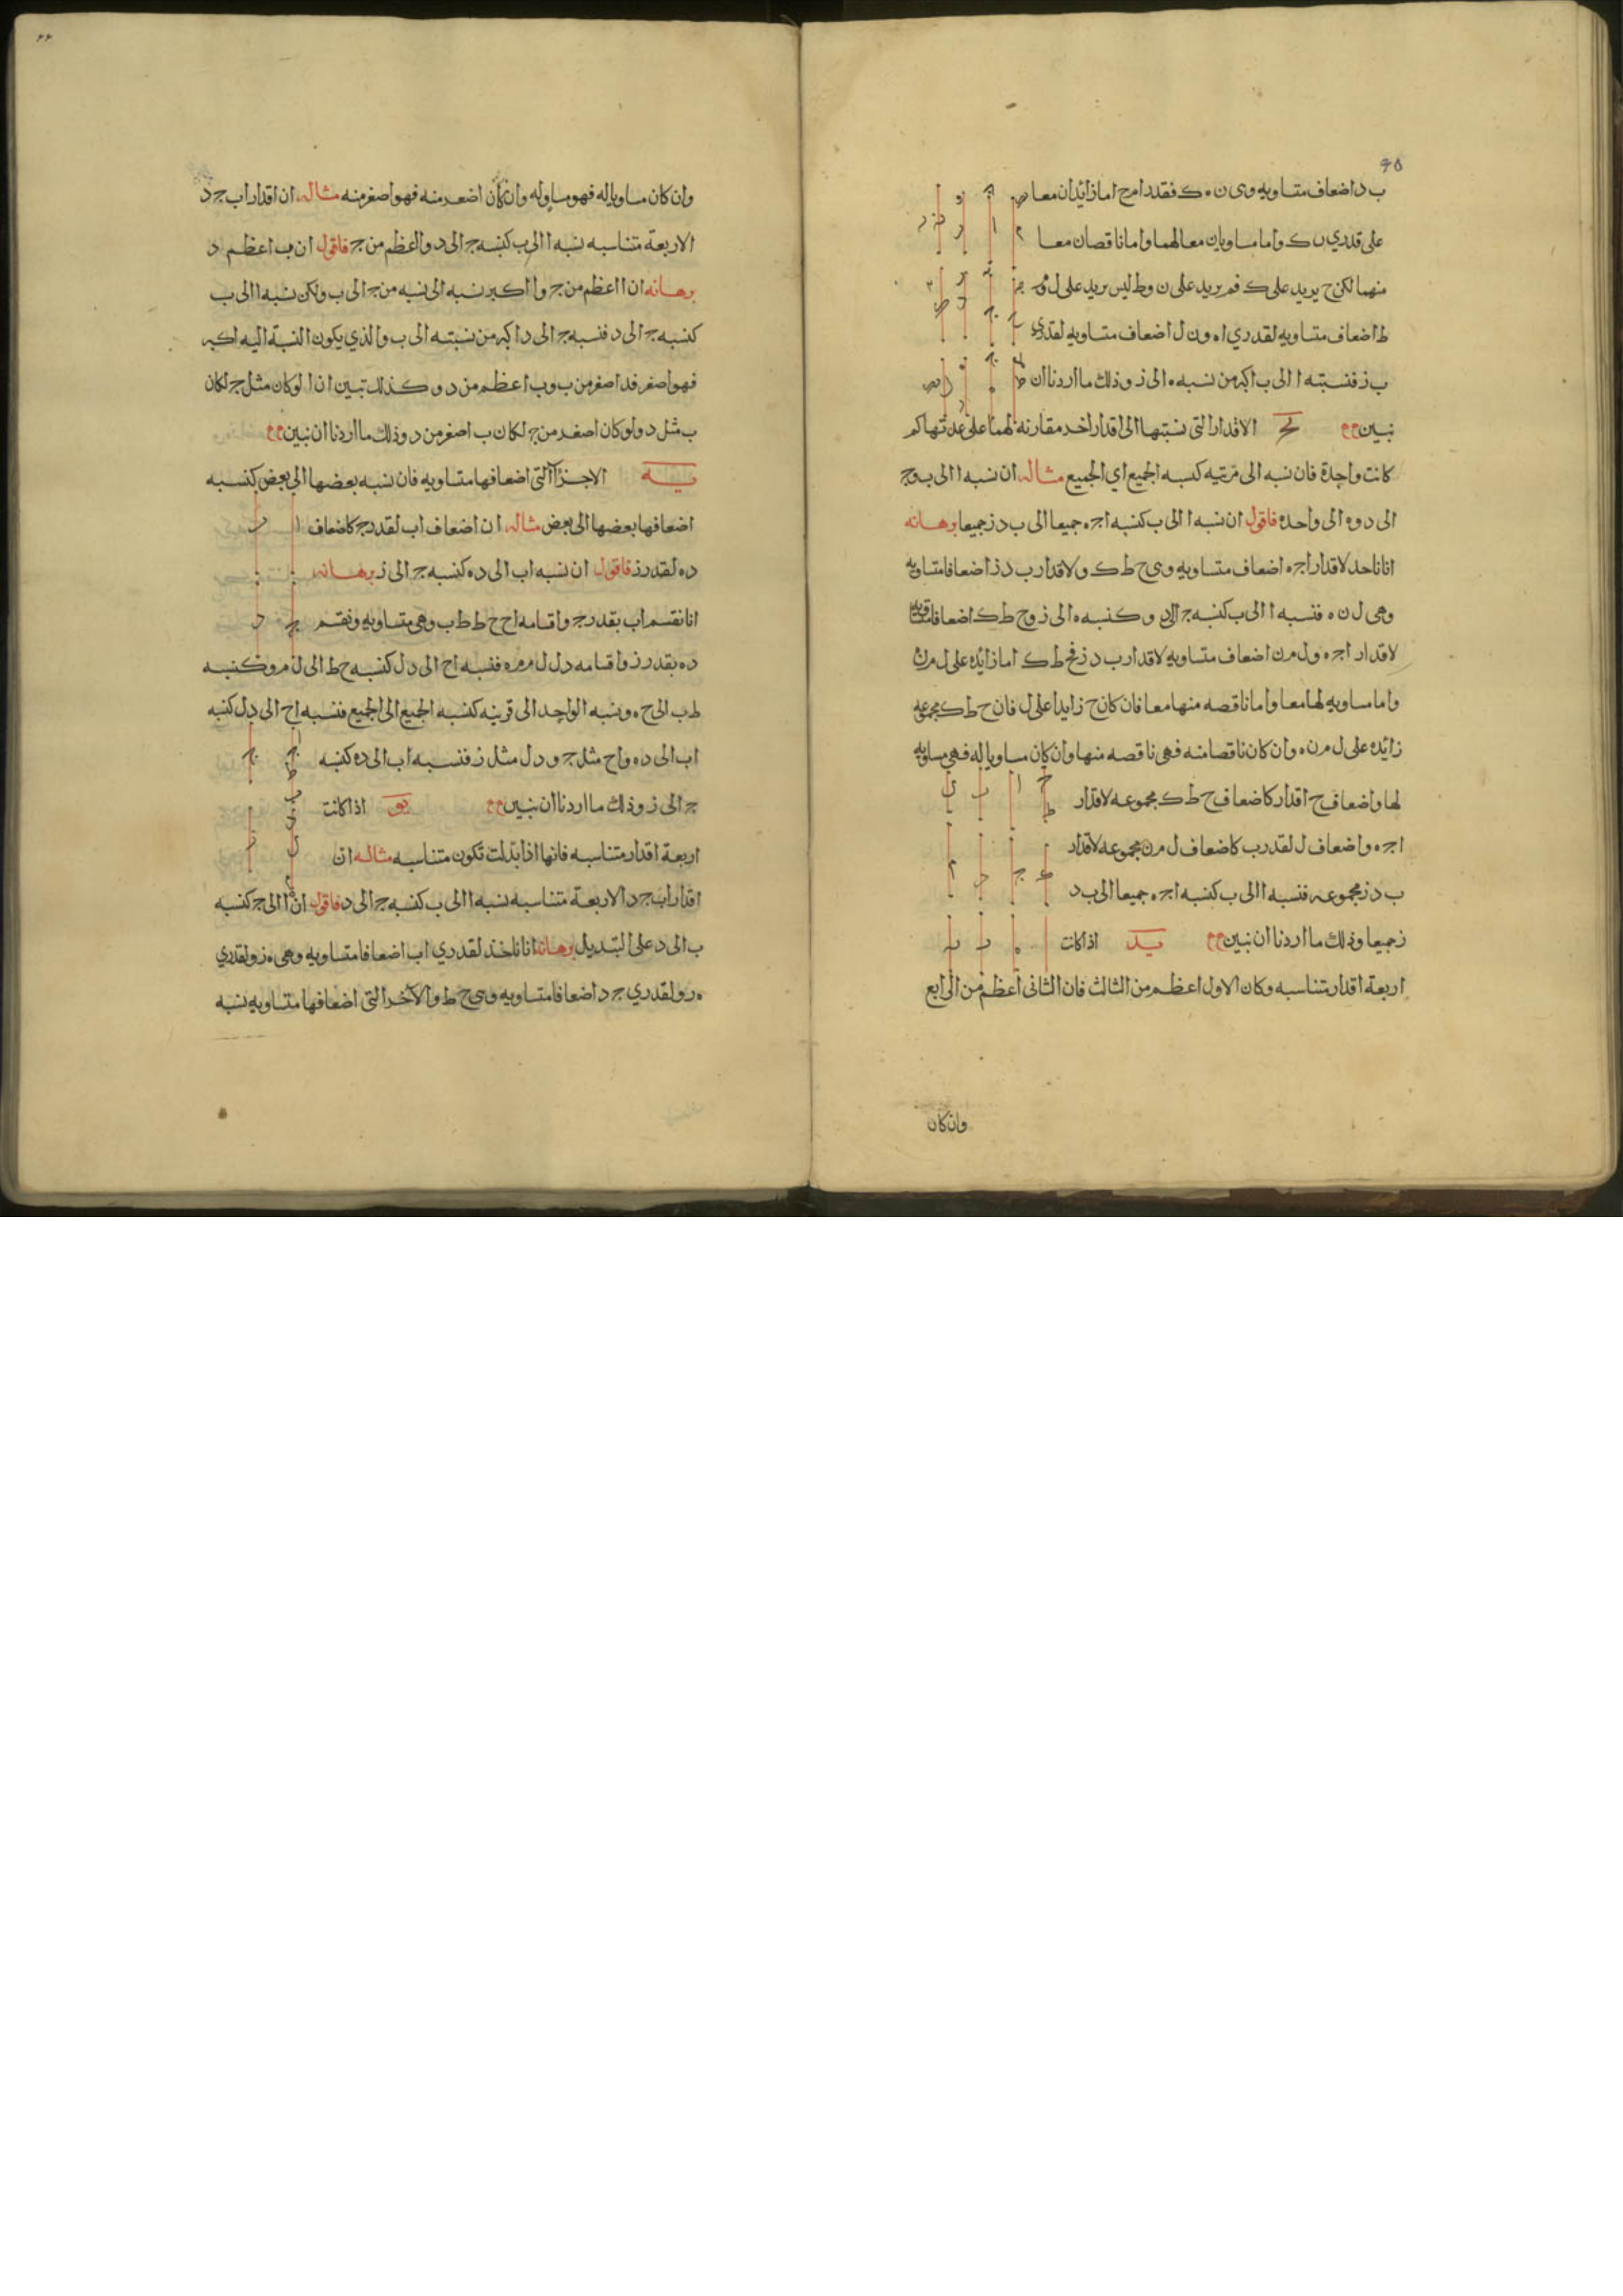 ٩٥
ب د اضعاف متساويه وهى ن ه ك فقدرا م ح اما زائدان معا
على قدري ن ك واما مساويان معا لهما واما ناقصان معا
منهما لكن ح يزيد على ك فم يزيد على ن وط ليس يزيد على ل و م
ط اضعاف متساويه لقدري ا ه و ن ل اضعاف متساويه لقدري
ب ز فنسبته ا الى ب اكبر من نسبه ه الى ز وذلك ما اردنا ان
نبين يج الاقدار التى نسبتها الى اقدار اخر مقارنة لهما على عدتها كم
كانت واحدة فان نسبه الى قرينه كنسبه الجميع الى الجميع مثاله ان نسبه ا الى ب و ج
الى د و ه الى ز واحده فاقول ان نسبه ا الى ب كنسبه ا ج ه جميعا الى ب د ز جميعا برهانه
انا ناخذ لاقدار ا ج ه اضعاف متساويه وهى ح ط ك ولاقدار ب د ز اضعافا متساويه
وهى ل ن ه فنسبه ا الى ب كنسبه ج الى د وكنسبه ه الى ز و ح ط ك اضعافا متساويه
لاقدار ا ج ه و ل م ن اضعاف متساويه لاقدار ب د ز فح ط ك اما زائده على ل م ن
واما مساويه لها معا واما ناقصه منها معا فان كان ح زايدا على ل فان ح ط ك مجموعه
زائده على ل م ن ه وان كان ناقصا منه فهى ناقصه منها وان كان مساويا له فهي مساويه
لها واضعاف ح اقدار كاضعاف ح ط ك مجموعه لاقدار
ا ج ه واضعاف ل لقدر ب كاضعاف ل م ن مجموعه لاقدار
ب د ز مجموعه فنسبه ا الى ب كنسبه ا ج ه جميعا الى ب د
ز جميعا وذلك ما اردنا ان نبين يد اذا كانت
اربعة اقدار متناسبه وكان الاول اعظم من الثالث فان الثانى اعظم من الرابع
وان كان
وان كان مساويا له فهو مساو له وان كان اصغر منه فهو اصغر منه مثاله ان اقدار ا ب ج د
الاربعة متناسبه نسبه ا الى ب كنسبه ج الى د وا اعظم من ج فاقول ان ب اعظم د
برهانه ان ا اعظم من ج و ا اكبر نسبه الى نسبه من ج الى ب ولكن نسبه ا الى ب
كنسبه ج الى د فنسبه ج الى د اكبر من نسبته الى ب والذي يكون النسبة اليه اكبر
فهو اصغر فد اصغر من ب وب اعظم من د وكذلك تبين ان ا لو كان مثل ج لكان
ب مثل د ولو كان اصغر من ج لكان ب اصغر من د وذلك ما اردنا ان نبين
يه الاجزآ التى اضعافها متساويه فان نسبه بعضها الى بعض كنسبه
اضعافها بعضها الى بعض مثاله ان اضعاف ا ب لقدر ج كاضعاف
د ه لقدر ز فاقول ان نسبه ا ب الى د ه كنسبه ج الى ز برهانه
انا نقسم ا ب بقدر ج واقسامه ا ح ح ط ط ب وهى متساويه ونقسم
د ه بقدر ز واقسامه د ل ل م م ه فنسبه ا ح الى د ل كنسبه ح ط الى ل م وكنسبه
ط ب الى م ه ونسبه الواحد الى قرينه كنسبه الجميع الى الجميع فنسبه ا ح الى د ل كنسبه
ا ب الى د ه و ا ح مثل ج و د ل مثل ز فنسبه ا ب الى د ه كنسبه
ج الى ز وذلك ما اردنا ان نبين يو اذا كانت
اربعة اقدار متناسبه فانها اذا بدلت تكون متناسبه مثاله ان
اقدار ا ب ج د الاربعة متناسبه نسبه ا الى ب كنسبه ج الى د فاقول ان ا الى ج كنسبه
ب الى د على التبديل برهانه انا ناخذ لقدري ا ب اضعافا متساويه وهى ه ز ولقدري
ه ز ولقدري ج د اضعافا متساويه وهى ح ط والآخر التى اضعافها متساويه نسبه